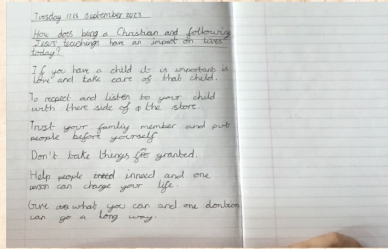 Tuesday 11th September 2023
How does being a Christian and following
Jesus' teachings have an impact on lives
today?
If you have a child it is important is
love and take care of that child.
To respect and listen to your child
with there side of the store.
Trust your family member and put
people before yourself
Don't take things for granted.
Help people inneed and one
person can change your life.
Give what you can and one dontion
can go a long way.